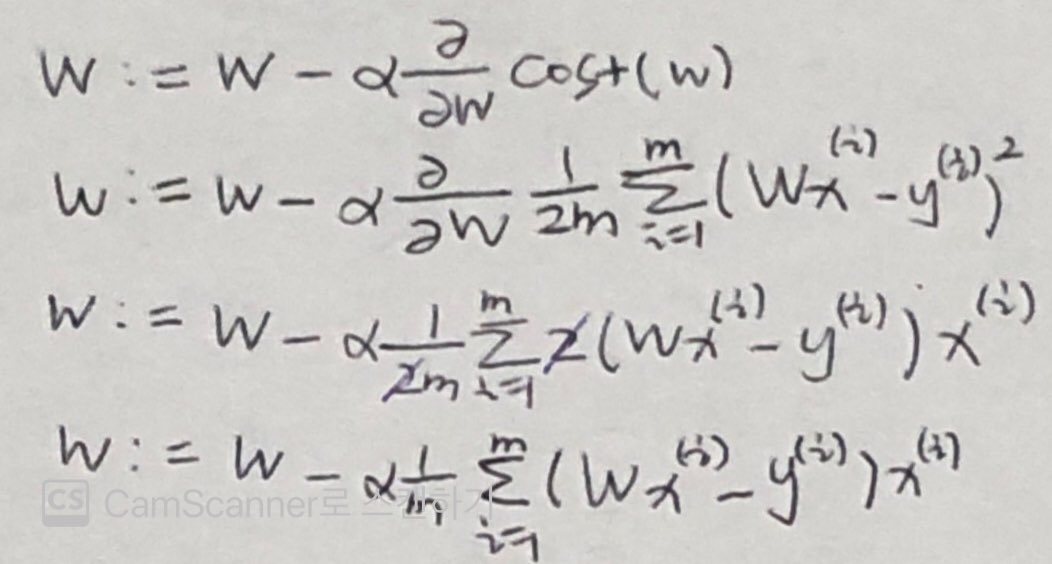 W := W - α ∂/∂W cost(W)
W := W - α ∂/∂W 1/2m Σ_{i=1}^{m} (Wx^{(i)} - y^{(i)})^2
W := W - α 1/2m Σ_{i=1}^{m} 2(Wx^{(i)} - y^{(i)}) x^{(i)}
W := W - α 1/m Σ_{i=1}^{m} (Wx^{(i)} - y^{(i)}) x^{(i)}
CS CamScanner로 스캔하기